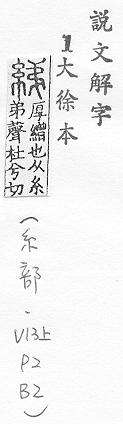 説文解字
1大徐本
綈厚繒也从糸
弟聲杜兮切
(糸部·
V13上
P2
B2)